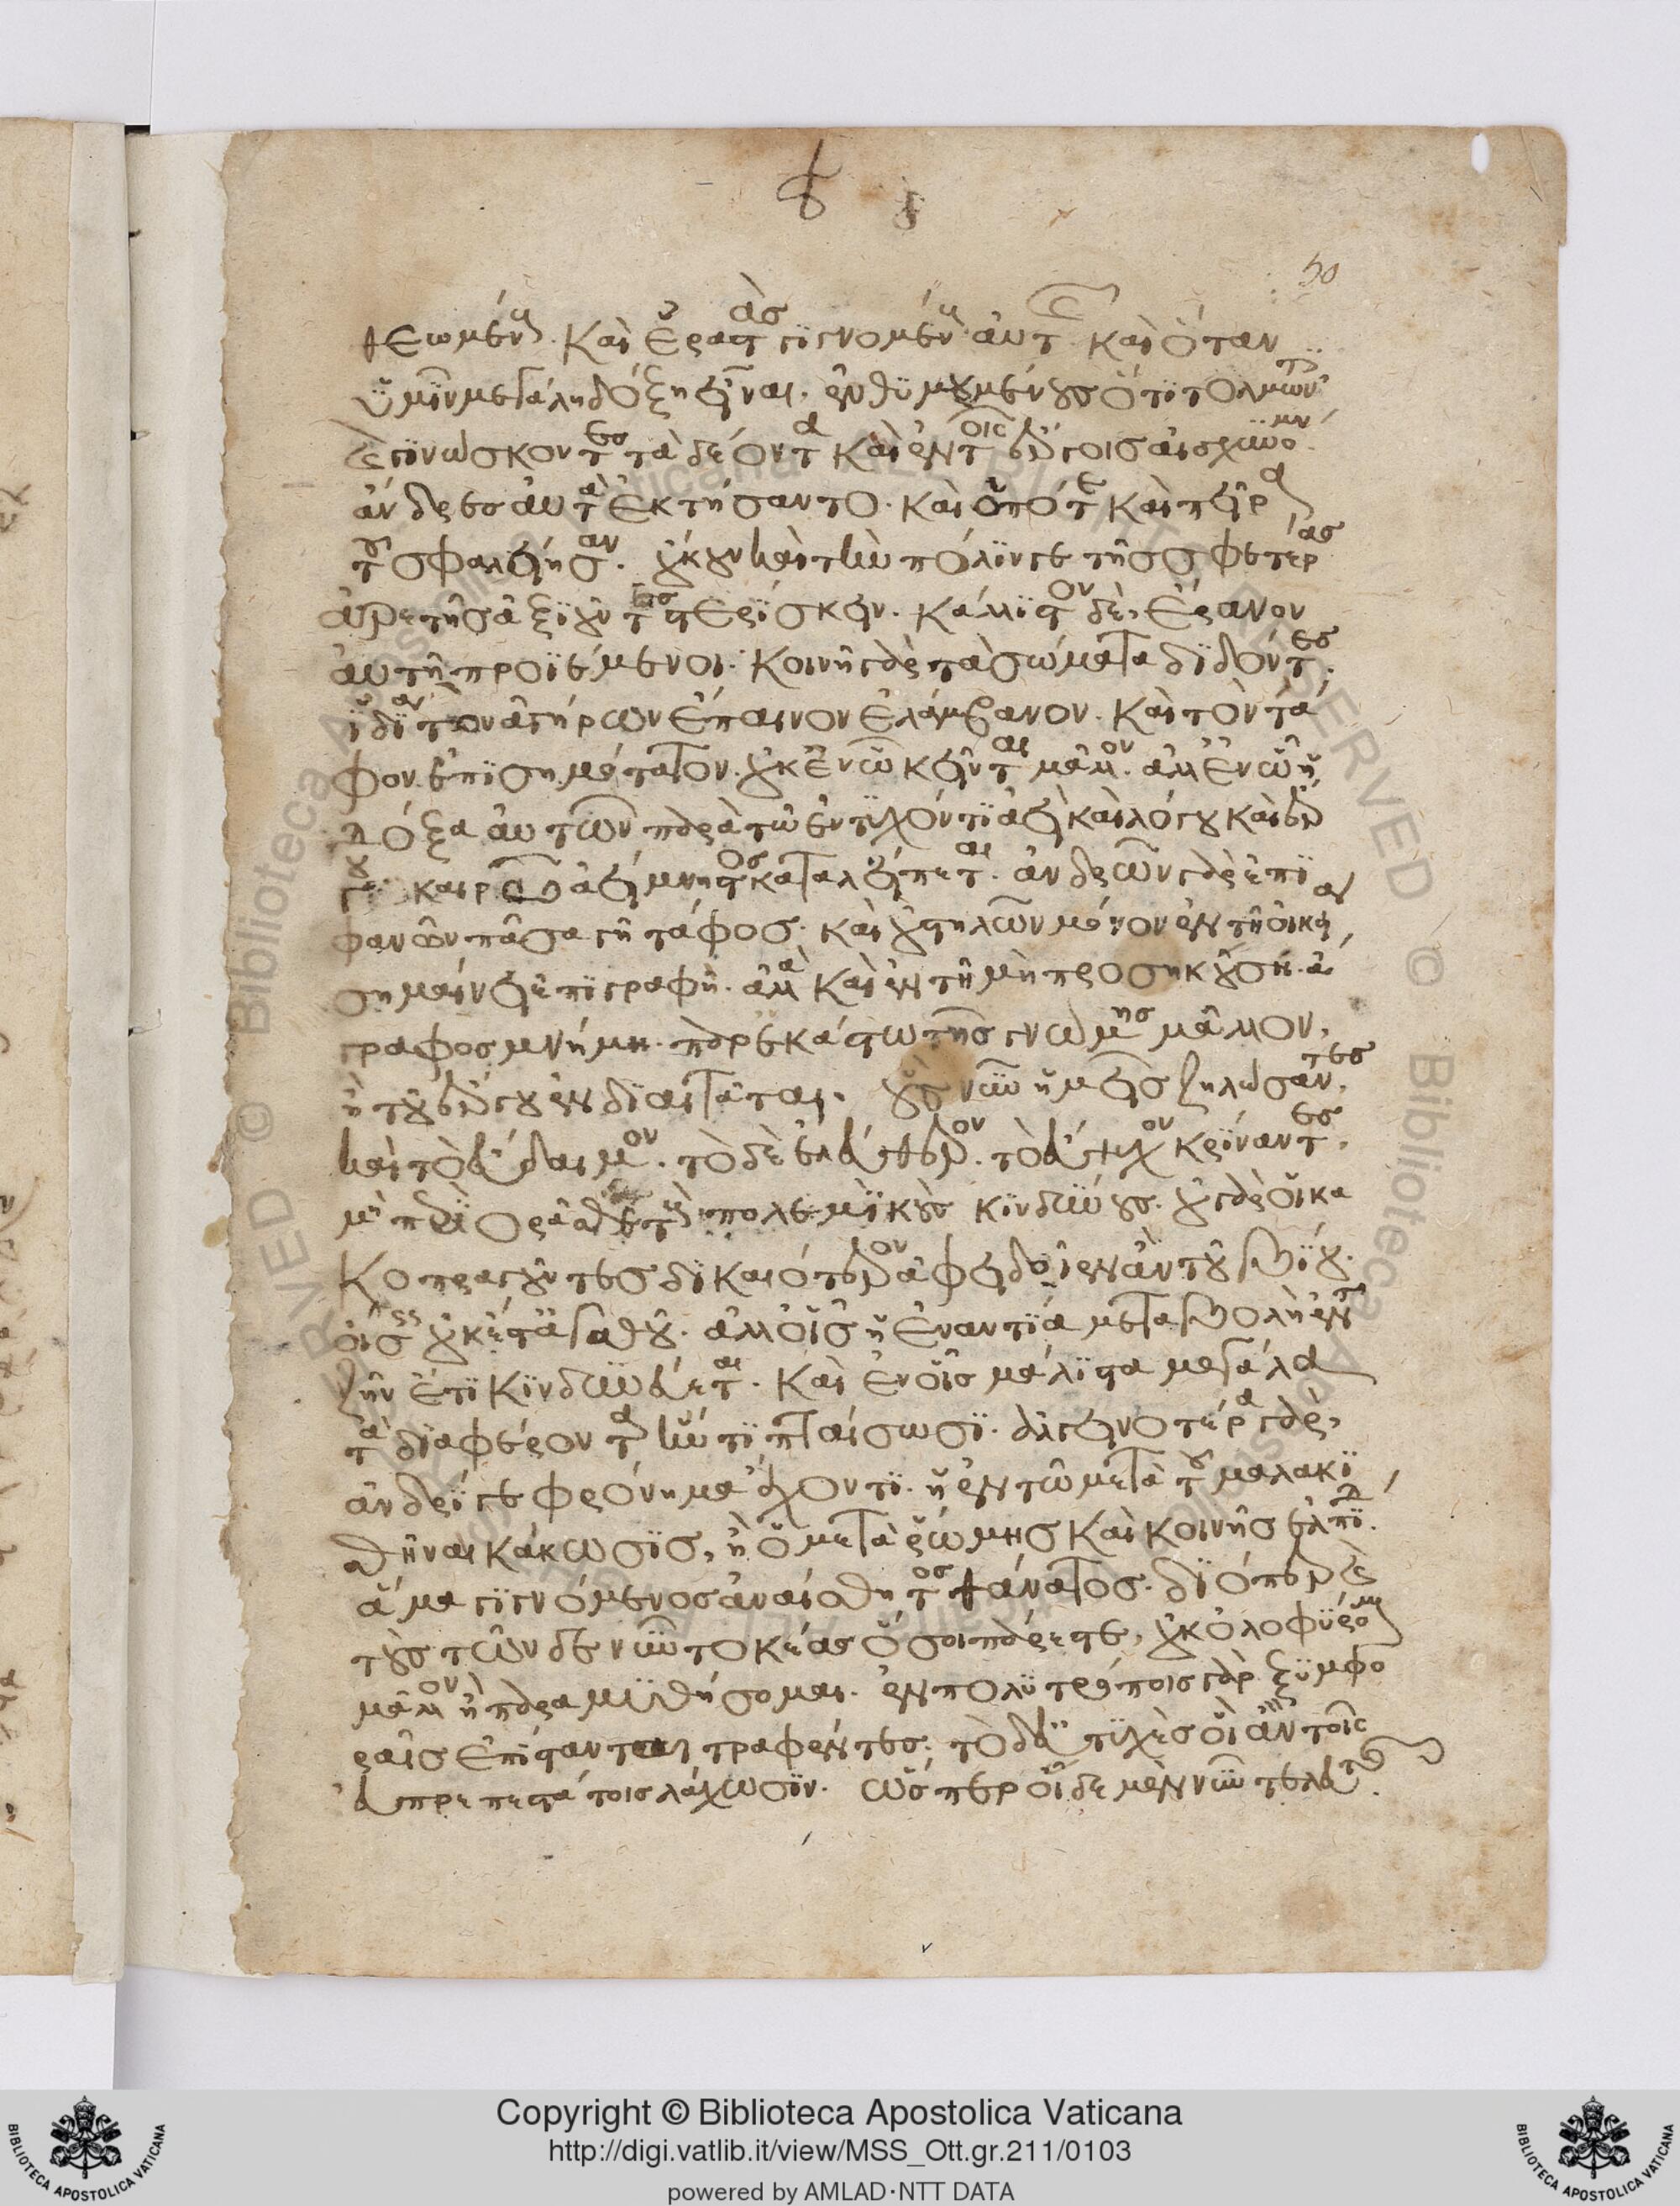 50
θεωμένους. καὶ ἐραστὰς γιγνομένους αὐτῆς καὶ ὅταν
ὑμῖν μεγάλη δόξῃ εἶναι. ἐνθυμουμένους ὅτι τολμῶντες
καὶ γινώσκοντες τὰ δέοντα καὶ ἐν τοῖς ἔργοις αἰσχυνόμενοι
ἄνδρες αὐτὰ ἐκτήσαντο. καὶ ὁπότε καὶ πείρᾳ
του σφαλείησαν. οὐκ οὖν καὶ τὴν πόλιν γε τῆς σφετέρας
ἀρετῆς ἀξιοῦντες στερίσκειν. κάλλιστον δὲ, ἔρανον
αὐτῇ προϊέμενοι. κοινῇ γὰρ τὰ σώματα διδόντες.
ἰδίᾳ τὸν ἀγήρων ἔπαινον ἐλάμβανον. καὶ τὸν τά
φον ἐπισημότατον. οὐκ ἐν ᾧ κεῖνται μᾶλλον. ἀλλ ἐν ᾧ ἡ
δόξα αὐτῶν παρὰ τῷ ἐντυχόντι ἀεὶ καὶ λόγου καὶ ἔρ
γου καιρῷ ἀείμνηστος καταλείπεται. ἀνδρῶν γὰρ ἐπι
φανῶν πᾶσα γῆ τάφος. καὶ οὐ στηλῶν μόνον ἐν τῇ οἰκείᾳ
σημαίνει ἐπιγραφὴ. ἀλλὰ καὶ ἐν τῇ μὴ προσηκούσῃ. ἄ
γραφος μνήμη. παρ ἑκάστῳ τῆς γνώμης μᾶλλον,
ἢ τοῦ ἔργου ἐνδιαιτᾶται. οὓς νῦν ὑμεῖς ζηλώσαντες,
καὶ τὸ εὔδαιμον. τὸ δὲ ἐλεύθερον. τὸ εὔψυχον κρίναντες,
μὴ περιορᾶσθε τοὺς πολεμικοὺς κινδύνους. οὐ γὰρ οἱ κα
κοπραγοῦντες δικαιότερον ἀφειδοῖεν ἂν τοῦ βίου.
οἷς ἐλπὶς οὐκ ἔστιν ἀγαθοῦ. ἀλλ οἷς ἡ ἐναντία μεταβολὴ ἐν τῷ
ζῆν ἔτι κινδυνεύεται. καὶ ἐν οἷς μάλιστα μεγάλα
τὰ διαφέροντα ἤν τι πταίσωσι. ἀλγεινοτέρα γὰρ,
ἀνδρί γε φρόνημα ἔχοντι. ἡ ἐν τῷ μετὰ τοῦ μαλακι
σθῆναι κάκωσις, ἢ ὁ μετὰ ῥώμης καὶ κοινῆς ἐλπίδος.
ἅμα γιγνόμενος ἀναίσθητος θάνατος. διόπερ καὶ
τοὺς τῶνδε νῦν τοκέας ὅσοι πάρεστε, οὐκ ὀλοφύρομαι
μᾶλλον ἢ παραμυθήσομαι. ἐν πολυτρόποις γὰρ ξυμφο
ραῖς ἐπίστανται τραφέντες. τὸ δ εὐτυχὲς οἳ ἂν τῆς
εὐπρεπεστάτοις λάχωσιν. ὥσπερ οἵδε μὲν νῦν τελευτῆς.
Copyright © Biblioteca Apostolica Vaticana
http://digi.vatlib.it/view/MSS_Ott.gr.211/0103
powered by AMLAD·NTT DATA